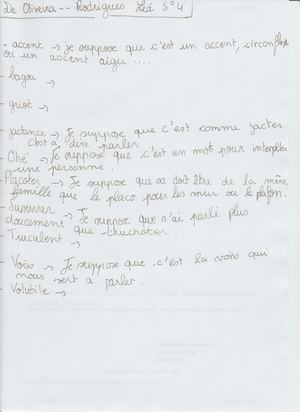 De Oliveira -- Rodrigues Léa 5°4
- accent → je suppose que c'est un accent, circonflexe
ou un accent aigu ....
- bagou →
- griot →
- jactance → Je suppose que c'est comme jacter
c'est a dire parler
- Ohé → Je suppose que c'est un mot pour interpeller
une personne.
- Placoter → Je suppose que sa doit être de la même
famille que le placo pour les mur ou le plafon.
- Susurrer
doucement → Je suppose que s'ai parlé plus
que chuchoter.
- Truculent →
- Voix → Je suppose que c'est la voix qui
nous sert a parler.
- Volubile →